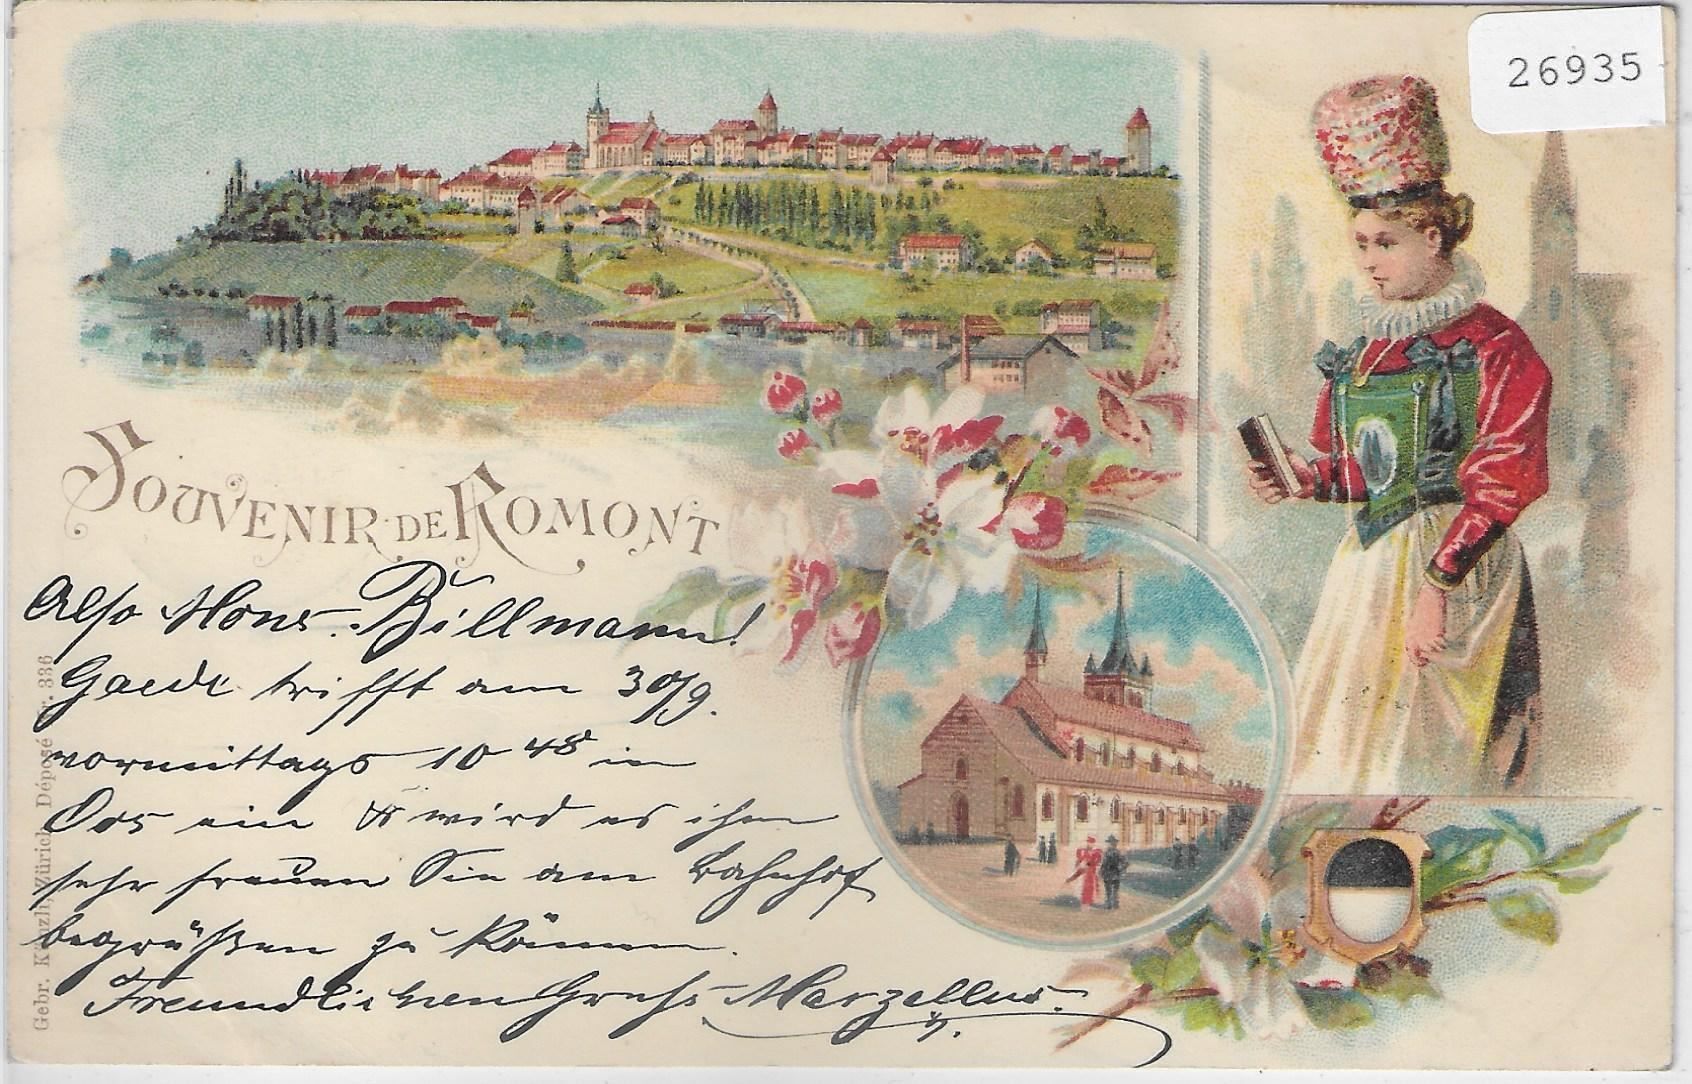 26935
SOUVENIR DE ROMONT
Also Mons. Billmann!
Gaedi trifft am 30/9.
vormittags 10 48 in
Ors ein & wird es ihn
sehr freuen Sie am Bahnhof
begrüßen zu können.
Freundlichen Gruss Marzellus.
Gebr. Künzli, Zürich, Déposé Nr. 336